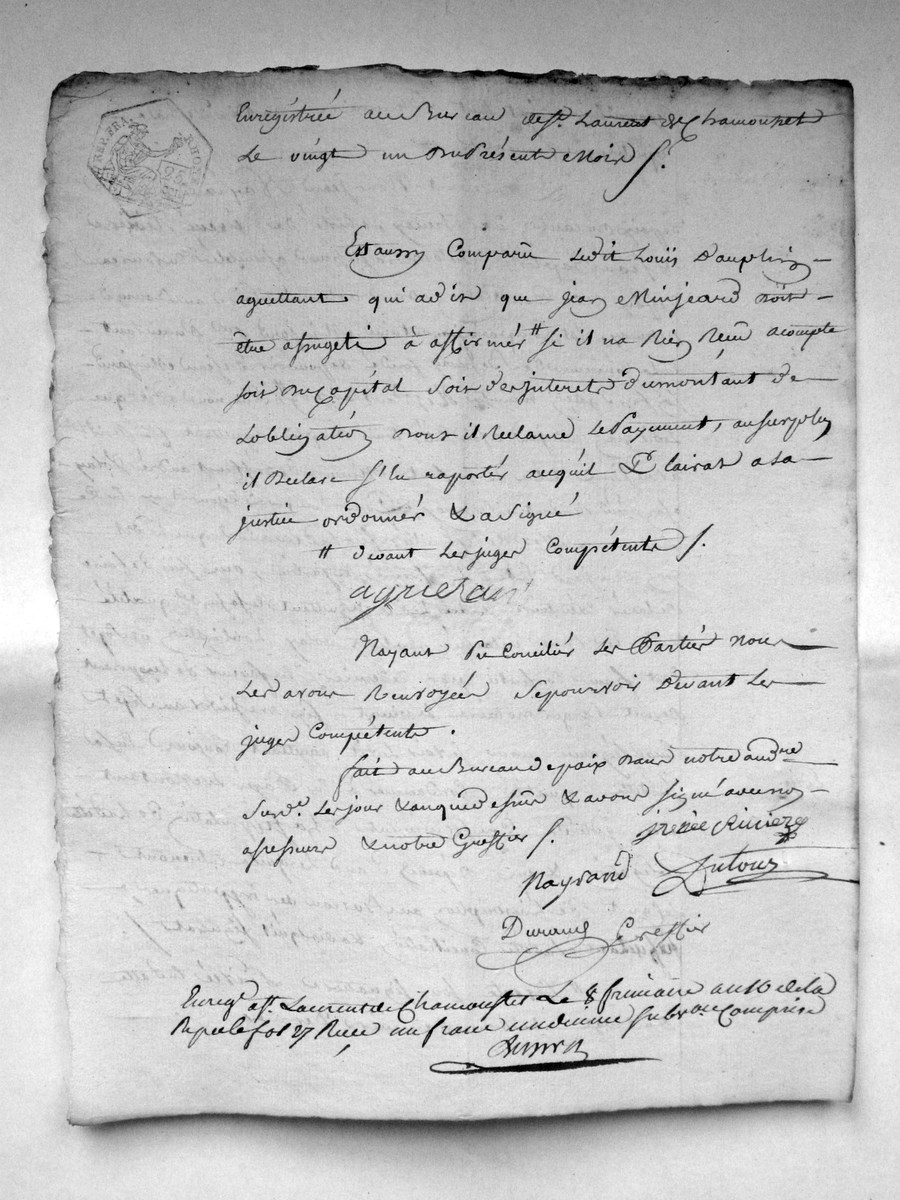 REP. FRA. RHONE
25
Enregistrée au Bureau de St. Laurent de Chamousset
Le vingt un du Présent Mois /.
Est aussy Comparu Ledit Louïs Dauphin
aguettant qui a dit que jean Minjeard doit
être assugeti à affirmér # si il na Rien Reçu acompte
soit du Capital soit des jnterets du montant de
Lobligation dont il Reclame Le Payement, au surplus
il declare s'en raportér a cequil Plairat a la
justice ordonnér & a Signé
# devant Les juges Compétents /.
aguetant
Nayant Pu Conciliér Les Partiés nous
Les avons Renvoyée Se pourvoir devant Les
juges Compétents.
fait au Bureau de paix dans notre audre
Susde. Les jour & an que dessus & avons signé avec nos
assesseurs & notre Greffier /.
Rivière
Nayrand Dutour
Durand Greffier
Enregé. a St. Laurent de Chamousset Le 8 frimaire an 10 de la
Repce fol 27 Reçu un franc un decime Subvon Comprise